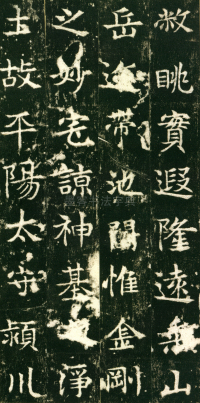 眺實遐隆遠山
岳帶池惟金剛
之妙宅諒神基淨
土故平陽太守潁川